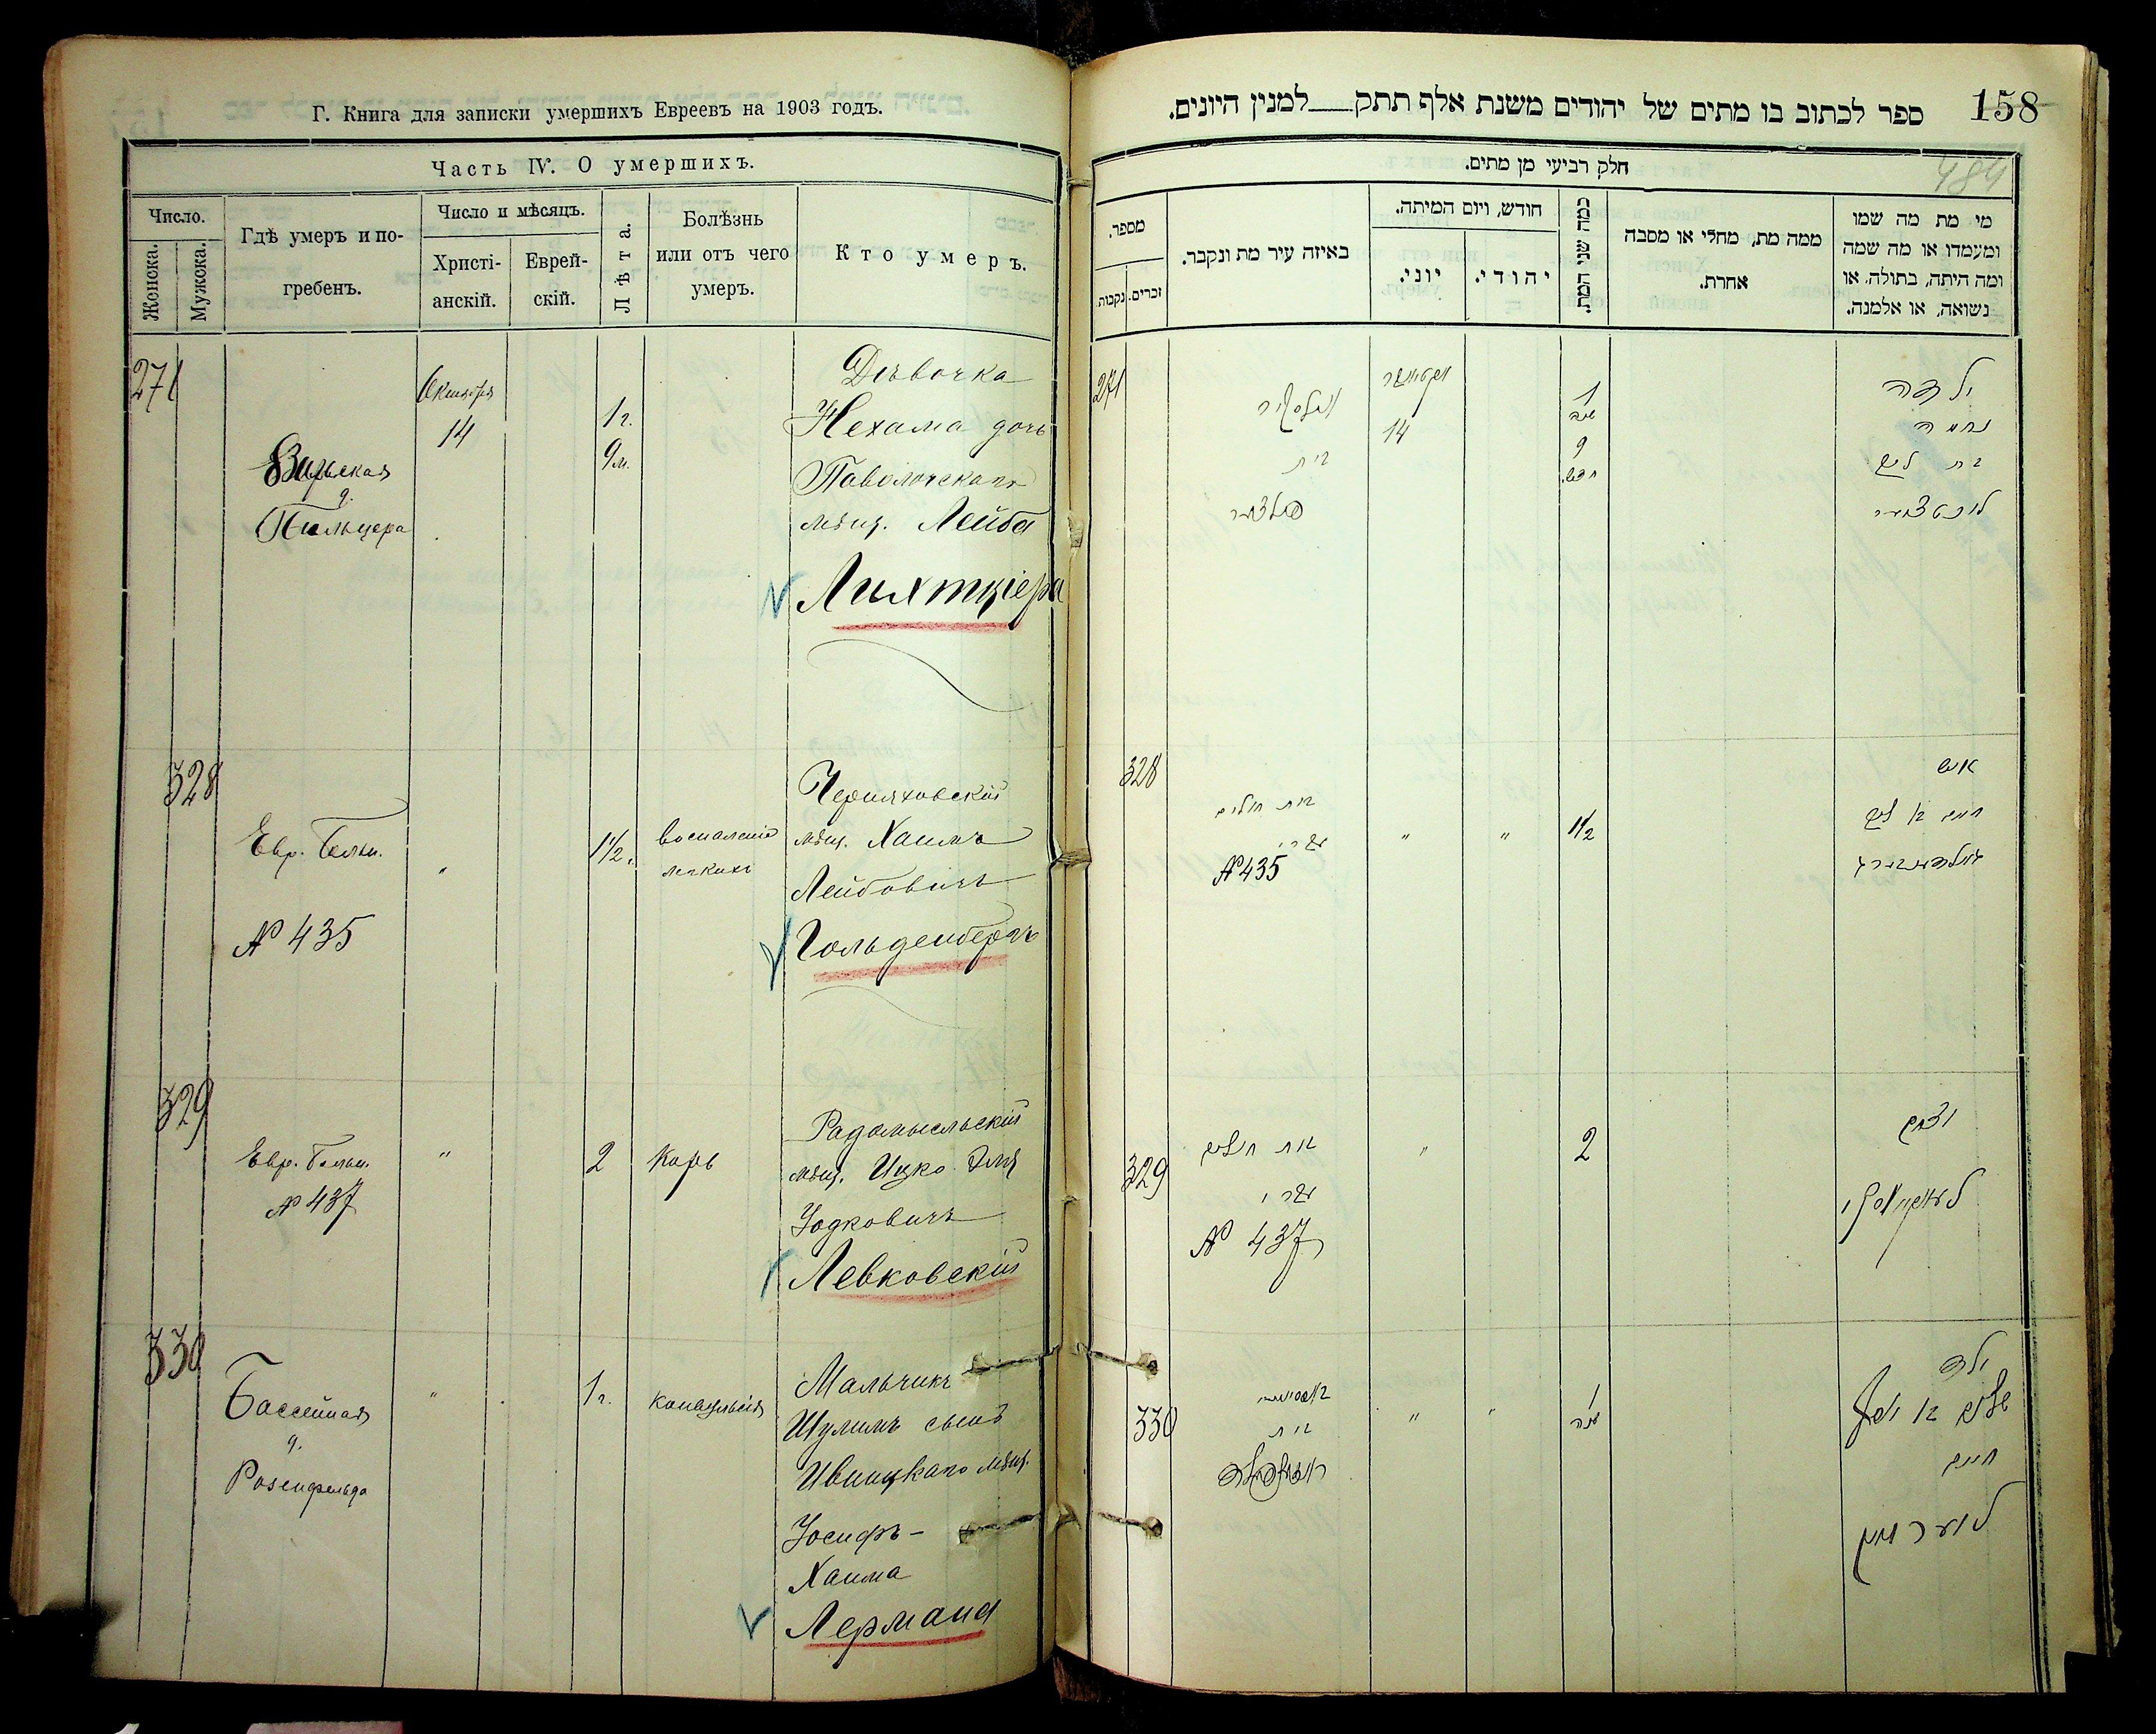 Г. Книга для записки умершихъ Евреевъ на 1903 годъ.
Часть IV. О умершихъ.
Число.
Женска.
Мужска.
Гдѣ умеръ и по-
гребенъ.
Число и мѣсяцъ.
Христі-
анскій.
Еврей-
скій.
Лѣта.
Болѣзнь
или отъ чего
умеръ.
Кто умеръ.
271
Пильцера
Октября
14
1 г.
9 м.
Дѣвочка
Нехама дочь
Паволочскаго
мѣщ. Лейба
328
Евр. Больн.
N 435
"
1 1/2 г.
воспаленіе
легкихъ
Черняховскій
мѣщ. Хаимъ
Лейбовичъ
Гольденбергъ
329
Евр. Больн.
N 437
"
2
Корь
Радомысльскій
мѣщ. Ицко
Левковскій
330
Бассейная
д.
Розенфельда
"
1 г.
Мальчикъ
Шулимъ сынъ
Ивницкаго мѣщ.
Іосифъ-
Хаима
Лермана
158
ספר לכתוב בו מתים של יהודים משנת אלף תתק למנין היונים.
484
חלק רביעי מן מתים.
מספר.
נקבות.
זכרים.
באיזה עיר מת ונקבר.
חודש, ויום המיתה.
יוני.
יהודי.
כמה שני המת.
ממה מת, מחלי או מסבה
אחרת.
מי מת מה שמו
ומעמדו או מה שמה
ומה היתה, בתולה, או
נשואה, או אלמנה.
271
בית
אקטיאבר
14
1
שנה
9
חדש
ילדה
נחמה
בת ליב
328
בית חולים
N 435
"
"
1 1/2
איש
חיים בן ליב
גאלדענבערג
329
בית חולים
N 437
"
2
לעווקאווסקי
330
בית
"
"
1
שנה
ילד
שלום בן יוסף
חיים
לערמאן